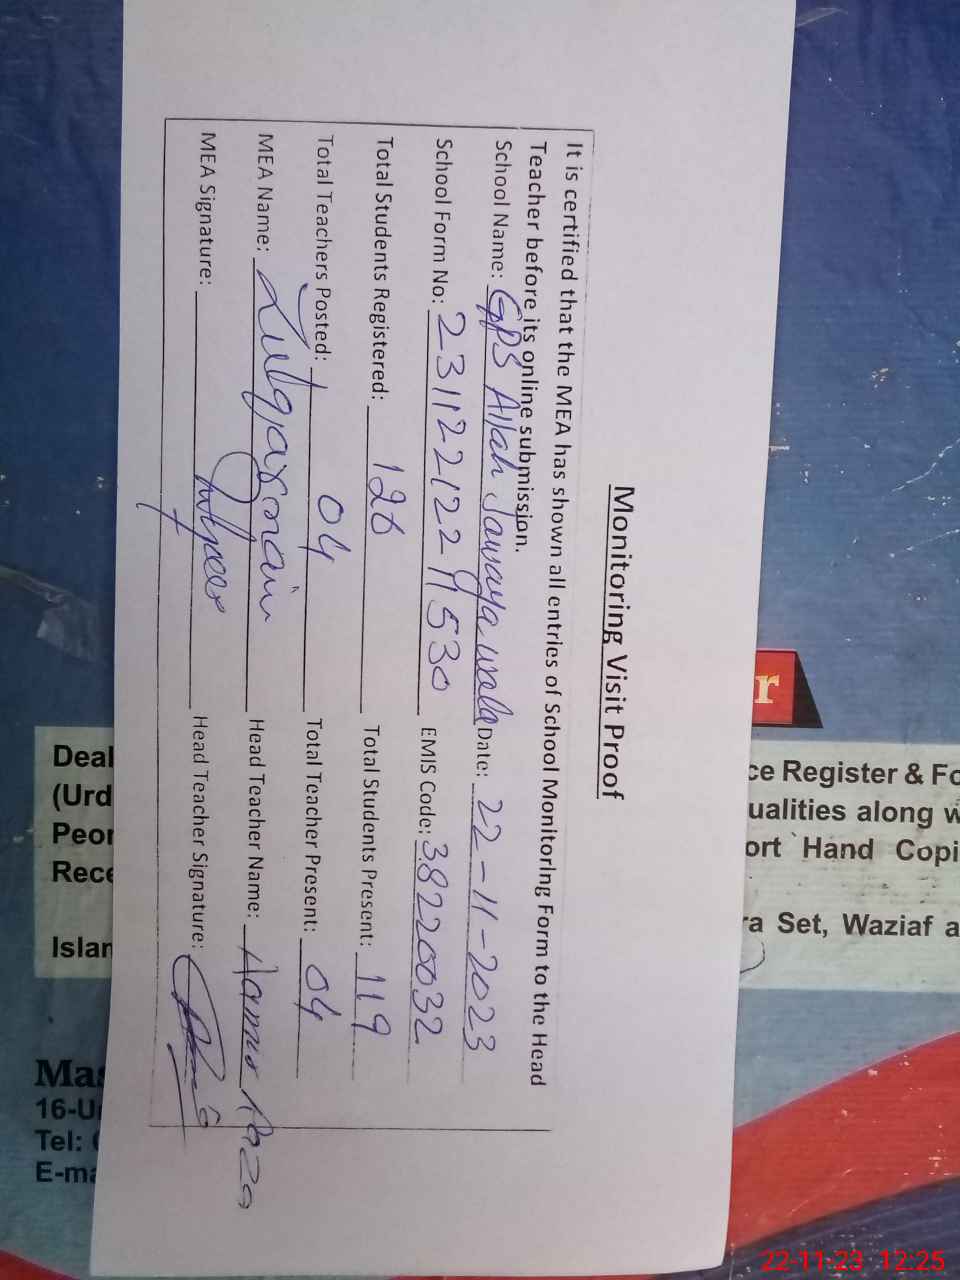 Monitoring Visit Proof
It is certified that the MEA has shown all entries of School Monitoring Form to the Head
Teacher before its online submission.
School Name: GPS Allah Jawaya wala Date: 22-11-2023
School Form No: 23112212211530 EMIS Code: 38220032
Total Students Registered: 126 Total Students Present: 119
Total Teachers Posted: 04 Total Teacher Present: 04
MEA Name: Zulqarnain Head Teacher Name: Aamir Raza
MEA Signature: Head Teacher Signature:
r
Deal
(Urd
Peor
Rece
Islan
ce Register & Fo
ualities along w
ort Hand Copi
ra Set, Waziaf a
Mas
16-U
Tel: (
E-ma
22-11-23 12:25